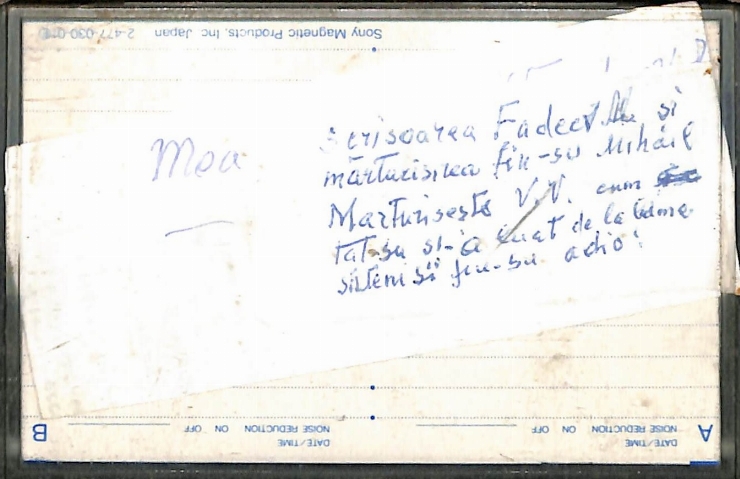 Sony Magnetic Products, Inc Japan
2-477-030-01
Mea
Scrisoarea Fadeev și
mărturisirea fiu-su Mihail
Marturisește V.V. cum
tat-su și-a luat de la
sistem și fiu-su adio!
B
DATE/TIME
NOISE REDUCTION ON OFF
A
DATE/TIME
NOISE REDUCTION ON OFF